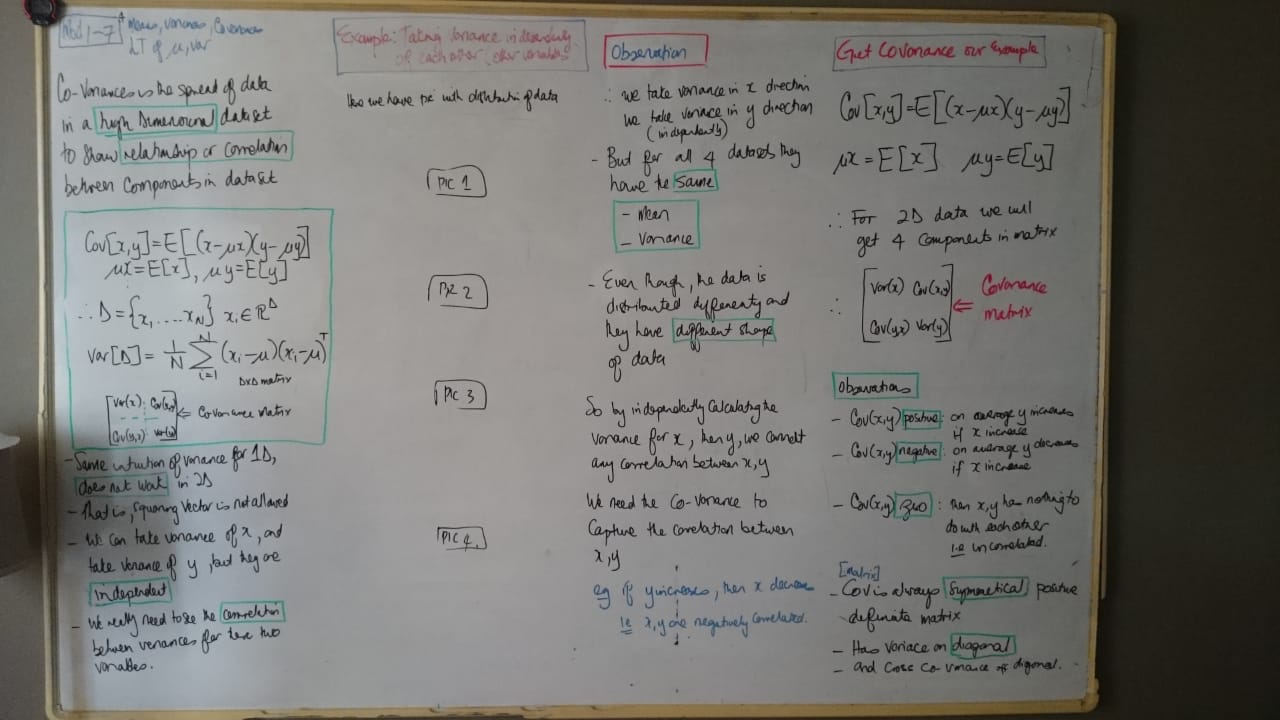 Mod 1-7 4 Means, Variances, Covariances
LT of μ, var
Co-Variances is the spread of data
in a high Dimensional dataset
to show relationship or correlation
between components in dataset
Cov[x,y]=E[(x-μx)(y-μy)]
μx=E[x], μy=E[y]
∴ D={x1....xN} xi∈ℝᴰ
Var[D]= 1/N Σ i=1 N (xi-μ)(xi-μ)ᵀ
DxD matrix
Var(x) Cov(x,y)
Cov(y,x) Var(y)
⇐ Covariance Matrix
- Same intuition of variance for 1D,
does not work in 2D
- That is, squaring vector is not allowed
- We can take variance of x, and
take variance of y, but they are
independent
- We really need to see the correlation
between variances for two
variables.
Example: Taking Variance independently
of each other other variables
we have pic with distribution of data
PIC 1
PIC 2
PIC 3
PIC 4
Observation
∴ we take variance in x direction
we take variace in y direction
(independently)
- But for all 4 datasets they
have the same
- Mean
- Variance
- Even though, the data is
distributed differently and
they have different shape
of data
So by independently calculating the
variance for x, then y, we cannot
any correlation between x,y
We need the Co-Variance to
Capture the correlation between
x,y
eg if y increases, then x decrease
ie x,y are negatively correlated.
Get Covariance our Example
Cov[x,y]=E[(x-μx)(y-μy)]
μx=E[x] μy=E[y]
∴ For 2D data we will
get 4 components in matrix
∴ Var(x) Cov(x,y)
Cov(y,x) Var(y)
⇐ Covariance
matrix
Observations
- Cov(x,y) positive: on average y increases
if x increase
- Cov(x,y) negative: on average y decreases
if x increase
- Cov(x,y) zero: then x,y has nothing to
do with each other
i.e uncorrelated.
[matrix]
- Cov is always Symmetrical positive
definate matrix
- Has variace on diagonal
- and cross co-variance off digonal.